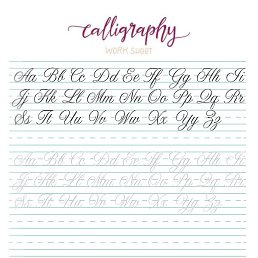 calligraphy
WORK SHEET
Aa Bb Cc Dd Ee Ff Gg Hh Ii
Jj Kk Ll Mm Nn Oo Pp Qq Rr
Ss Tt Uu Vv Ww Xx Yy Zz
Aa Bb Cc Dd Ee Ff Gg Hh Ii
Jj Kk Ll Mm Nn Oo Pp Qq Rr
Ss Tt Uu Vv Ww Xx Yy Zz